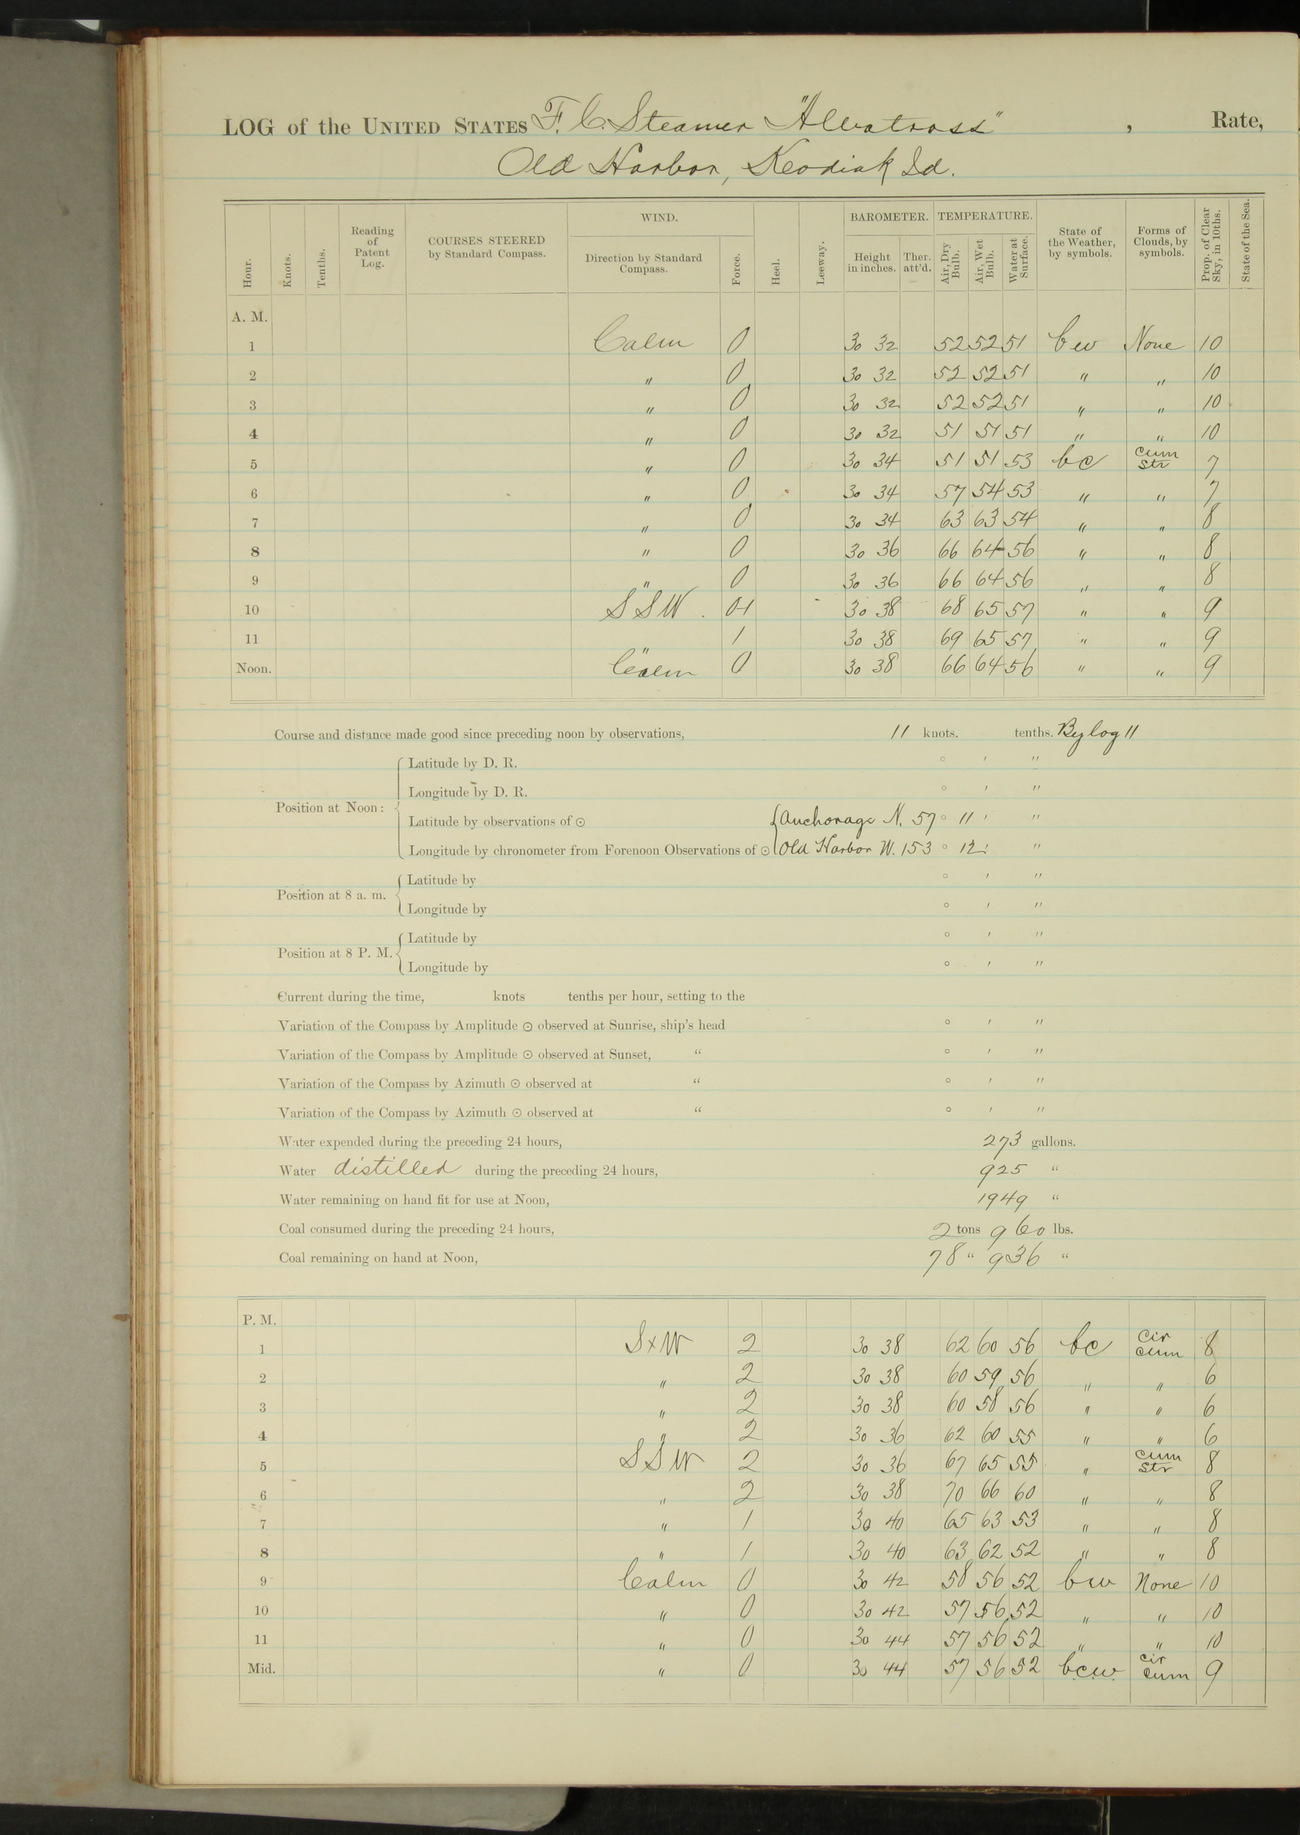 LOG of the UNITED STATES F. C. Steamer "Albatross" , Rate,
Old Harbor, Keodiak Id.
Hour. Knots. Tenths. Reading of Patent Log. COURSES STEERED by Standard Compass. WIND. Direction by Standard Compass. Force. Heel. Leeway. BAROMETER. Height in inches. Ther. att'd. TEMPERATURE. Air, Dry Bulb. Air, Wet Bulb. Water at Surface. State of the Weather, by symbols. Forms of Clouds, by symbols. Prop. of Clear Sky, in 10ths. State of the Sea.
A. M.
1 Calm 0 30 32 52 52 51 bw None 10
2 " 0 30 32 52 52 51 " " 10
3 " 0 30 32 52 52 51 " " 10
4 " 0 30 32 51 51 51 " " 10
5 " 0 30 34 51 51 53 bc cum str 7
6 " 0 30 34 57 54 53 " " 7
7 " 0 30 34 63 63 54 " " 8
8 " 0 30 36 66 64 56 " " 8
9 " 0 30 36 66 64 56 " " 8
10 SSW. 01 30 38 68 65 57 " " 9
11 " 1 30 38 69 65 57 " " 9
Noon. Calm 0 30 38 66 64 56 " " 9
Course and distance made good since preceding noon by observations, 11 knots. tenths. By log 11
Latitude by D. R. ° ′ ″
Longitude by D. R. ° ′ ″
Position at Noon:
Latitude by observations of ☉ Anchorage N. 57° 11′ ″
Longitude by chronometer from Forenoon Observations of ☉ Old Harbor W. 153° 12′ ″
Position at 8 a. m. Latitude by ° ′ ″
Longitude by ° ′ ″
Position at 8 P. M. Latitude by ° ′ ″
Longitude by ° ′ ″
Current during the time, knots tenths per hour, setting to the
Variation of the Compass by Amplitude ☉ observed at Sunrise, ship's head ° ′ ″
Variation of the Compass by Amplitude ☉ observed at Sunset, " ° ′ ″
Variation of the Compass by Azimuth ☉ observed at " ° ′ ″
Variation of the Compass by Azimuth ☉ observed at " ° ′ ″
Water expended during the preceding 24 hours, 273 gallons.
Water distilled during the preceding 24 hours, 925 "
Water remaining on hand fit for use at Noon, 1949 "
Coal consumed during the preceding 24 hours, 2 tons 960 lbs.
Coal remaining on hand at Noon, 78 " 936 "
P. M.
1 SxW 2 30 38 62 60 56 bc cir cum 8
2 " 2 30 38 60 59 56 " " 6
3 " 2 30 38 60 58 56 " " 6
4 " 2 30 36 62 60 55 " " 6
5 SSW 2 30 36 67 65 55 " cum str 8
6 " 2 30 38 70 66 60 " " 8
7 " 1 30 40 65 63 53 " " 8
8 " 1 30 40 63 62 52 " " 8
9 Calm 0 30 42 58 56 52 bw None 10
10 " 0 30 42 57 56 52 " " 10
11 " 0 30 44 57 56 52 " " 10
Mid. " 0 30 44 57 56 52 bcw cir cum 9